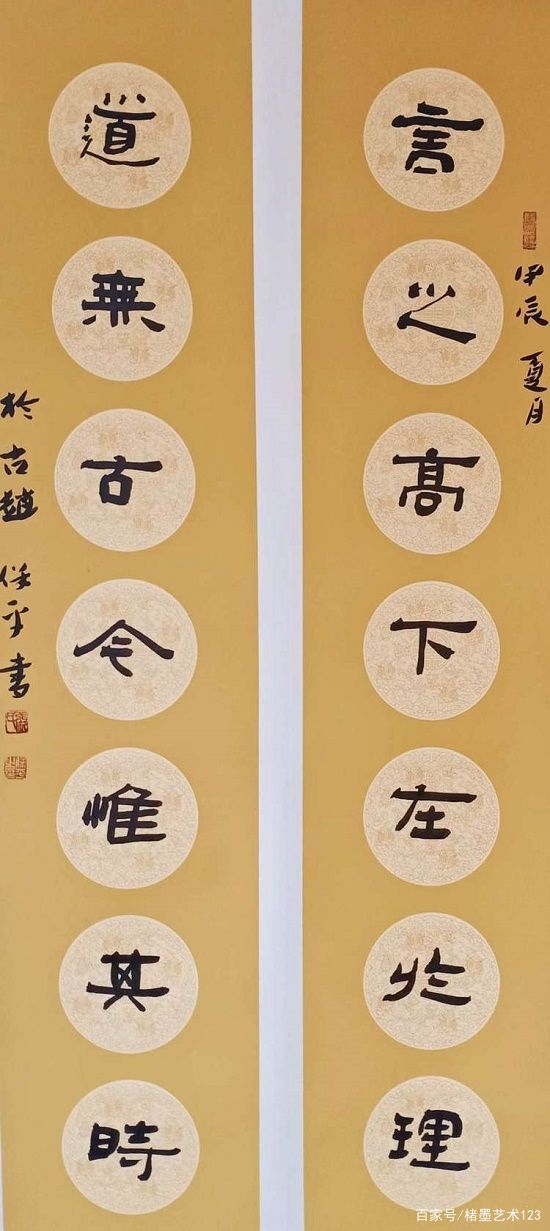 言之高下在於理
甲辰夏月
道無古今惟其時
於古趙 任平书
百家号/楮墨艺术123